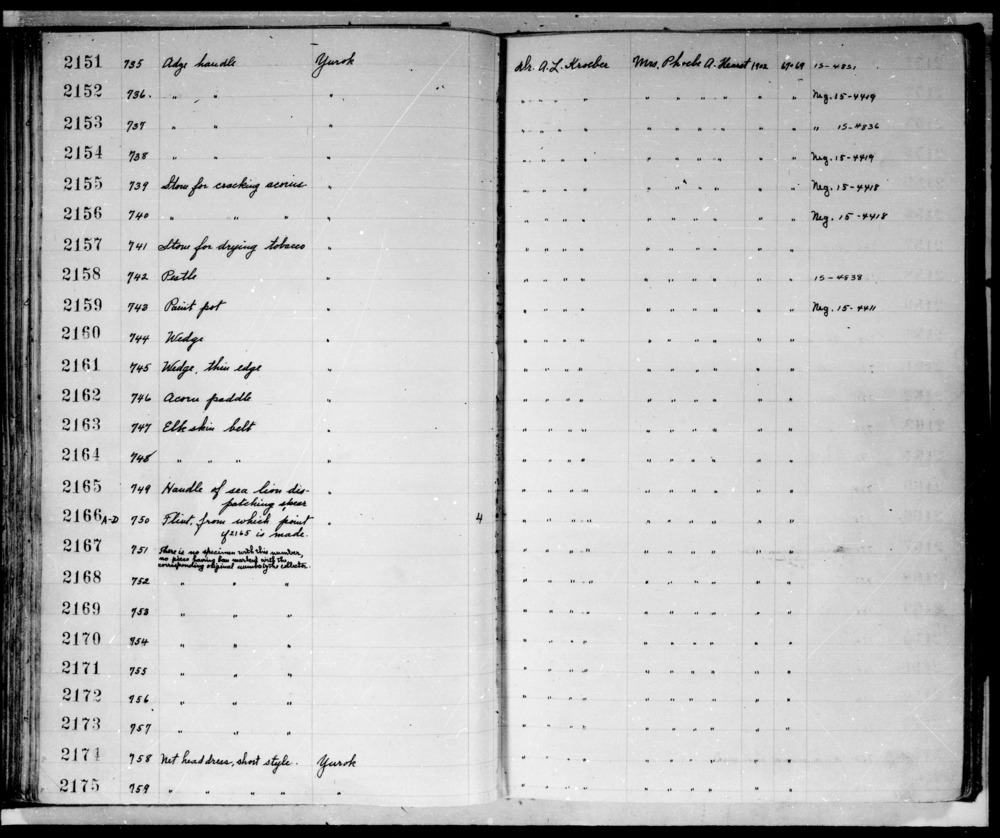 2151 735 Adze handle Yurok Dr. A. L. Kroeber Mrs. Phoebe A. Hearst 1902 67-69 15-4831
2152 736. " " " " " " " " " " " " " Neg. 15-4419
2153 737 " " " " " " " " " " " " " " 15-4836
2154 738 " " " " " " " " " " " " " Neg. 15-4419
2155 739 Stone for cracking acorns " " " " " " " " " " " Neg. 15-4418
2156 740 " " " " " " " " " " " " " " Neg. 15-4418
2157 741 Stone for drying tobacco " " " " " " " " " " "
2158 742 Pestle " " " " " " " " " " " 15-4838
2159 743 Paint pot " " " " " " " " " " " Neg. 15-4411
2160 744 Wedge " " " " " " " " " " "
2161 745 Wedge, thin edge " " " " " " " " " " "
2162 746 Acorn paddle " " " " " " " " " " "
2163 747 Elk skin belt " " " " " " " " " " "
2164 748 " " " " " " " " " " " " " "
2165 749 Handle of sea lion dis- " " " " " " " " " " "
patching spear
2166 A-D 750 Flint, from which point " 4 " " " " " " " " " "
of 2165 is made.
2167 751 There is no specimen with this number, " " " " " " " " " "
no piece having been marked with the
corresponding original number by the collector.
2168 752 " " " " " " " " " " " " "
2169 753 " " " " " " " " " " " " "
2170 754 " " " " " " " " " " " " "
2171 755 " " " " " " " " " " " " "
2172 756 " " " " " " " " " " " " "
2173 757 " " " " " " " " " " " " "
2174 758 Net head dress, short style. Yurok " " " " " " " " " "
2175 759 " " " " " " " " " " " " " " "